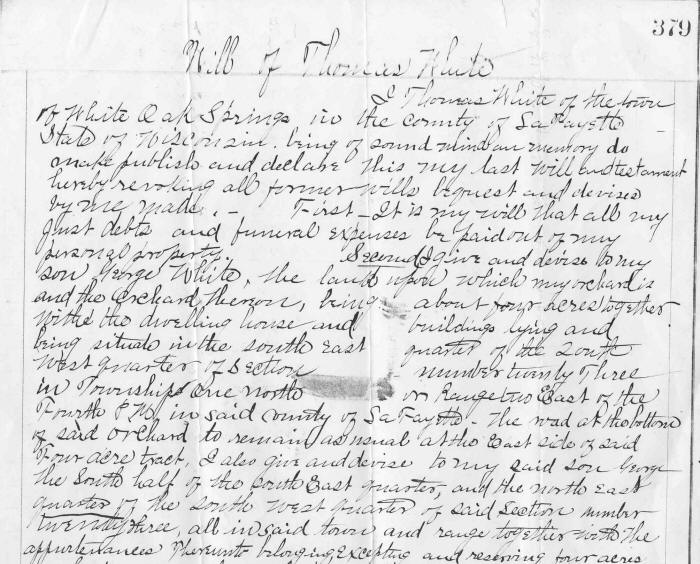 379
Will of Thomas White
I Thomas White of the town
of White Oak Springs in the County of LaFayette
State of Wisconsin. being of sound mind an memory do
make publish and declare this my last will and testament
hereby revoking all former wills bequest and devises
by me made. - First - It is my will that all my
just debts and funeral expenses be paid out of my
personal property. Second I give and devise to my
son George White, the land upon which my orchard is
and the Orchard thereon, being about four acres together
withe the dwelling house and buildings lying and
being situate in the south east quarter of the South
West quarter of Section number twenty Three
in Township One North on Range two East of the
Fourth P.M. in said county of LaFayette - the road at the bottom
of said orchard to remain as usual at the East side of said
Four acre tract, I also give and devise to my said son George
the South half of the south East quarter, and the north east
quarter of the south west quarter of said Section number
twenty three, all in said town and range together with the
appurtenances thereunto belonging, Excepting and reserving four acres